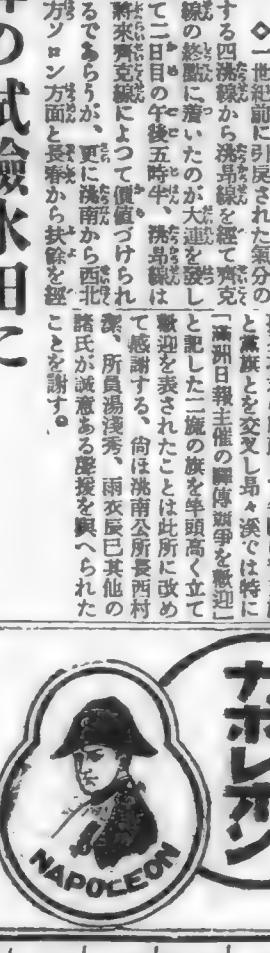 ◇一世紀前に引戻された氣分の
する四洮線から洮昂線を經て齊克
線の終點に着いたのが大連を發し
て二日目の午後五時半、洮昂線は
將來齊克線によつて價値づけられ
るであらうが、更に洮南から西北
方ソロン方面と長春から扶餘を經
と黨旗とを交叉し昂々溪では特に
「滿洲日報主催の驛傳競爭を歡迎」
と記した二旒の旗を竿頭高く立て
歡迎を表されたことは此所に改め
て感謝する、尙ほ洮南公所長西村
潔、所員湯淺秀、雨衣辰巳其他の
諸氏が誠意ある聲援を與へられた
ことを謝す。
の試驗水田に
ナポレオン
NAPOLEON